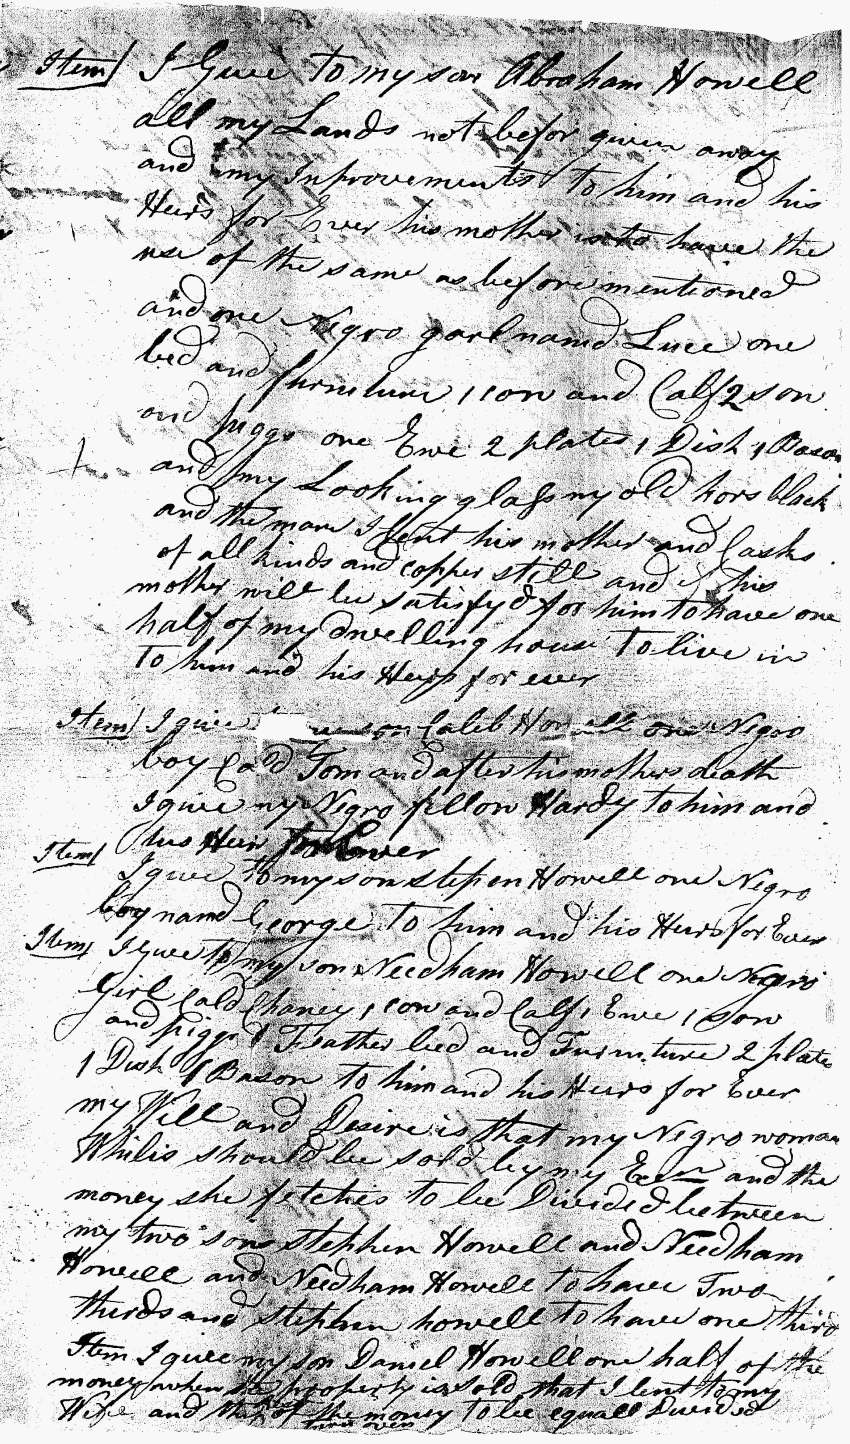 Item/ I Give to my son Abraham Howell
all my Lands not befor given away
and my Inprovements to him and his
Heirs for Ever his mother is to have the
use of the same as before mentioned
and one Negro garl namd Luce one
bed and furniture 1 cow and Calf 2 sow
and piggs one Ewe 2 plates 1 Dish 1 Bason
and my Looking glass my old hors black
and the mare I lent his mother and Casks
of all kinds and copper still and if his
mother will be satisfyd for him to have one
half of my dwelling house to live in
to him and his Heirs for ever
Item/ I give son Caleb Howell one Negro
boy Cald Tom and after his mothers death
I give my Negro fellow Hardy to him and
his Heirs for Ever
Item/ I give to my son stephen Howell one Negro
boy namd George to him and his Heirs for Ever
Item/ I Give to my son Needham Howell one Negro
Girl Cald Chaney 1 cow and Calf 1 Ewe 1 sow
and piggs 1 Feather bed and Furniture 2 plates
1 Dish 1 Bason to him and his Heirs for Ever
my Will and Desire is that my Negro woman
should be sold by my and the
money she fetches to be Divided between
my two sons stephen Howell and Needham
Howell and Needham Howell to have Two
thirds and stephen howell to have one third
Item I give my son Daniel Howell one half of the
money when the property is sold that I lent to my
Wife and the of the money to be equall Divided